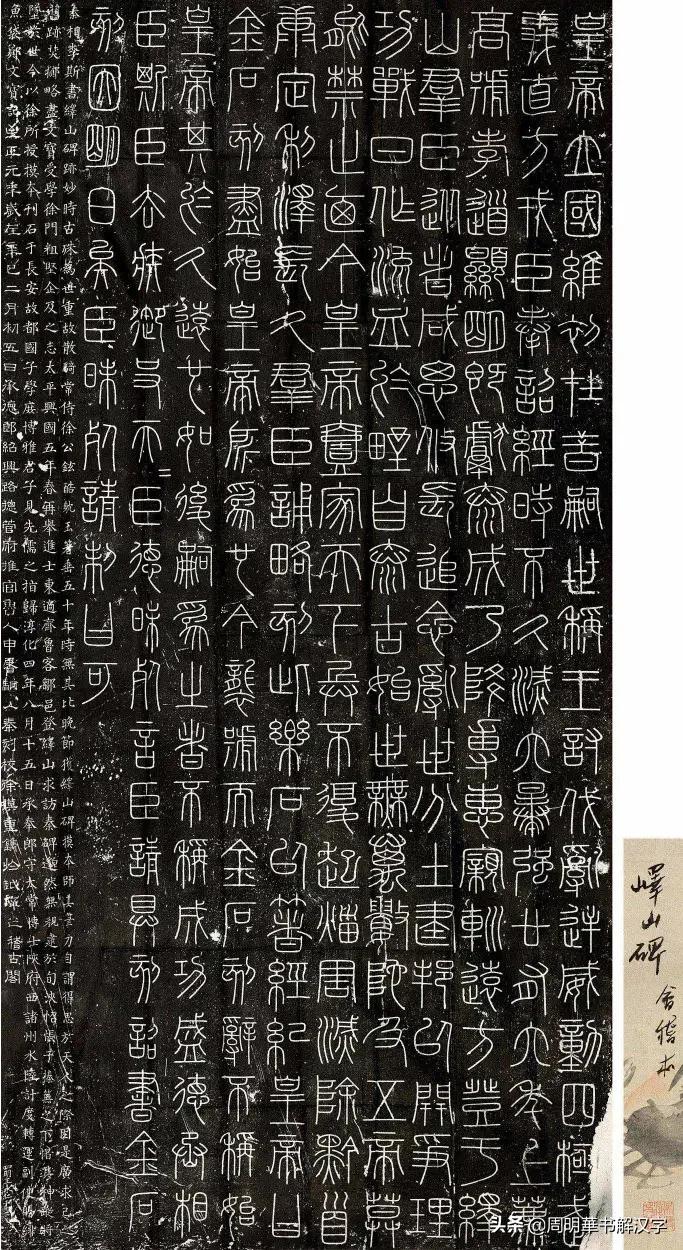 皇帝立國維初在昔嗣世稱王討伐亂逆威動四極武
義直方戎臣奉詔經時不久滅六暴強廿有六年上薦
高號孝道顯明既獻泰成乃降專惠親巡遠方登于繹
山羣臣從者咸思攸長追念亂世分土建邦以開爭理
功戰日作流血於野自泰古始世無萬數陀及五帝莫
能禁止迺今皇帝壹家天下兵不復起災害滅除黔首
康定利澤長久羣臣誦略刻此樂石以著經紀皇帝曰
金石刻盡始皇帝所爲也今襲號而金石刻辭不稱始
皇帝其於久遠也如後嗣爲之者不稱成功盛德丞相
臣斯臣去疾御史夫二臣德昧死言臣請具刻詔書金石
刻因明白矣臣昧死請制曰可
秦相李斯書繹山碑跡妙時古殊爲世重故散騎常侍徐公鉉酷躭玉箸垂五十年時無其比晚節獲繹山碑摸本師其筆力自謂得思於天人之際因是廣求己之
舊跡焚擲略盡文寶受學徐門粗堅企及之志太平興國五年春再舉進士東適齊魯客鄒邑登繹山求訪秦碑邈然無覩逮於旬浹悵於榛蕪之下惜其神蹤將
墜於世今以徐所授摸本刊石于長安故都國子學庶博雅君子見先儒之指歸淳化四年八月十五日承奉郎守太常博士陝府西諸州水陸計度轉運副使賜緋
魚袋鄭文寶記至正元年歲在辛巳二月初五日承德郎紹興路總管府推官魯人申屠駉以秦刻校徐摸重鐫於越庠之稽古閣
嶧山碑
會稽本
头条 @周明華书解汉字